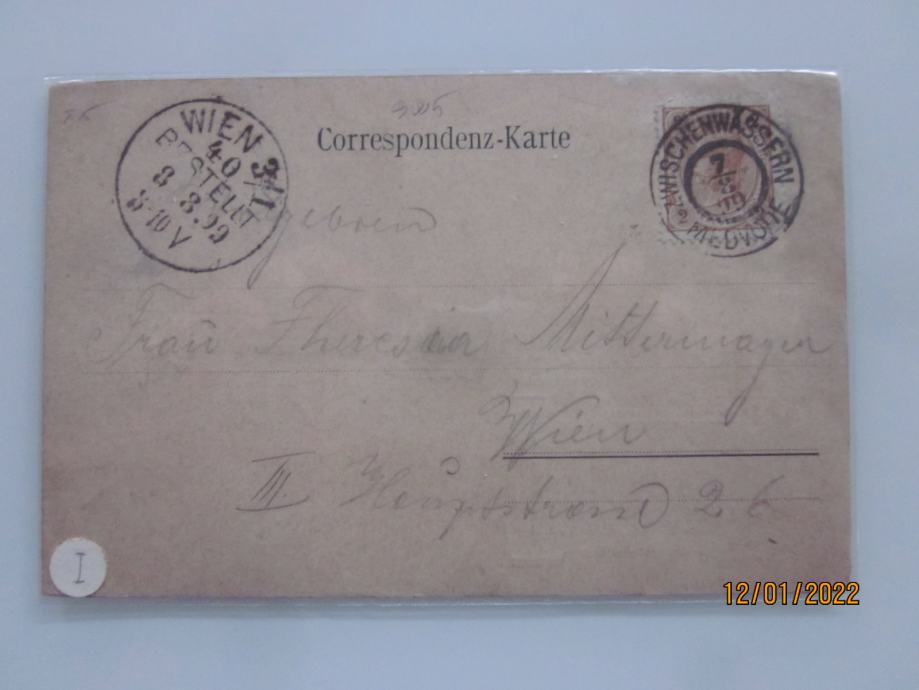 WIEN 3/1
40
BESTELLT
8 8.99
8-10 V
Correspondenz-Karte
ZWISCHENWASSERN
7
8
99
MEDVODE
2
gebren
Frau Theresia Mittermayer
Wien
III. Hauptstrasse 26
I
12/01/2022